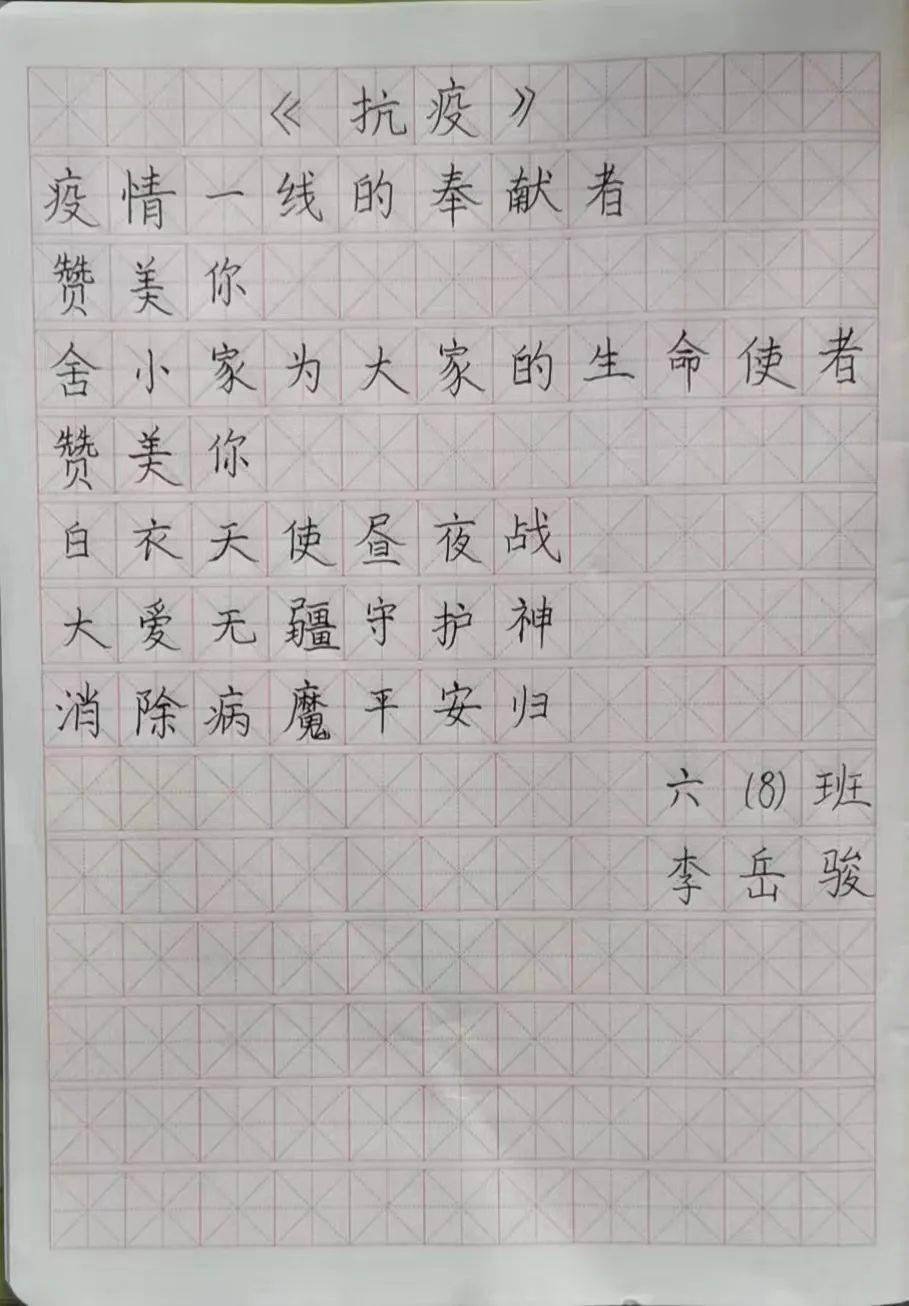 《抗疫》
疫情一线的奉献者
赞美你
舍小家为大家的生命使者
赞美你
白衣天使昼夜战
大爱无疆守护神
消除病魔平安归
六(8)班
李岳骏